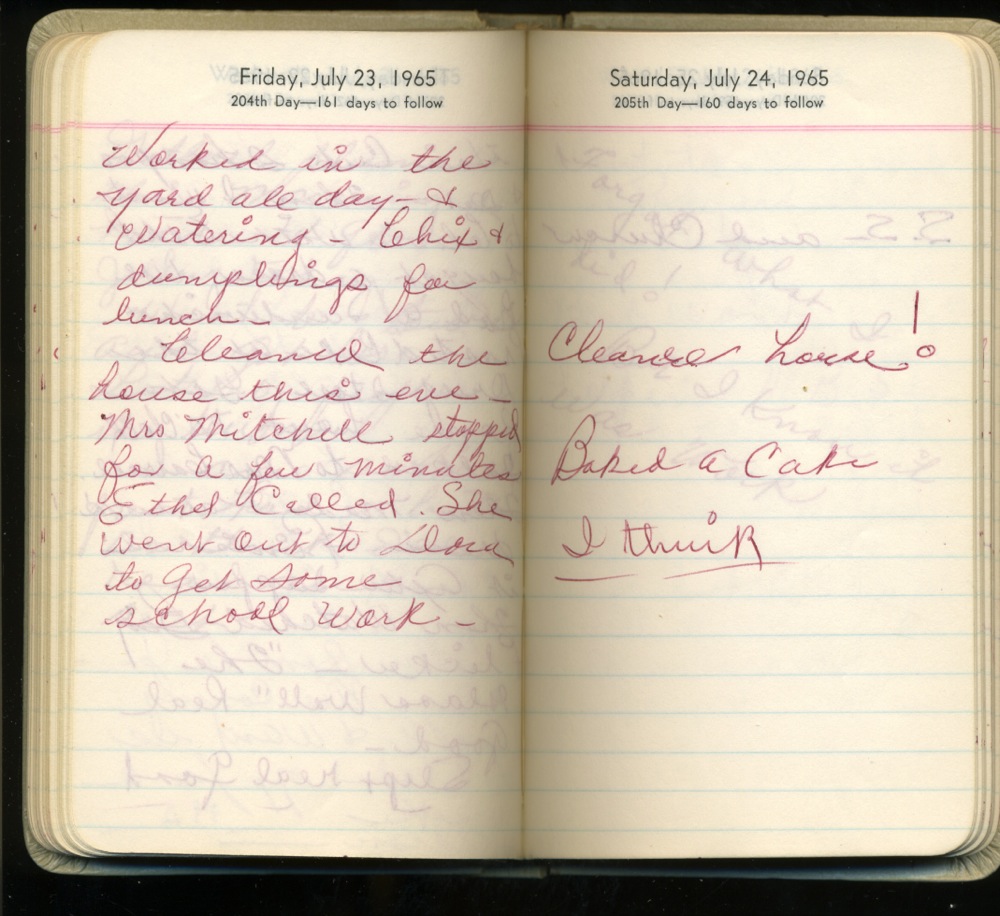 Friday, July 23, 1965
204th Day—161 days to follow
Worked in the
yard all day - &
Watering - Chix &
dumplings for
lunch -
Cleaned the
house this eve -
Mrs Mitchell stopped
for a few minutes
Ethel Called. She
went out to Dora
to get some
school work -
Saturday, July 24, 1965
205th Day—160 days to follow
Cleaned house!
Baked a Cake
I think